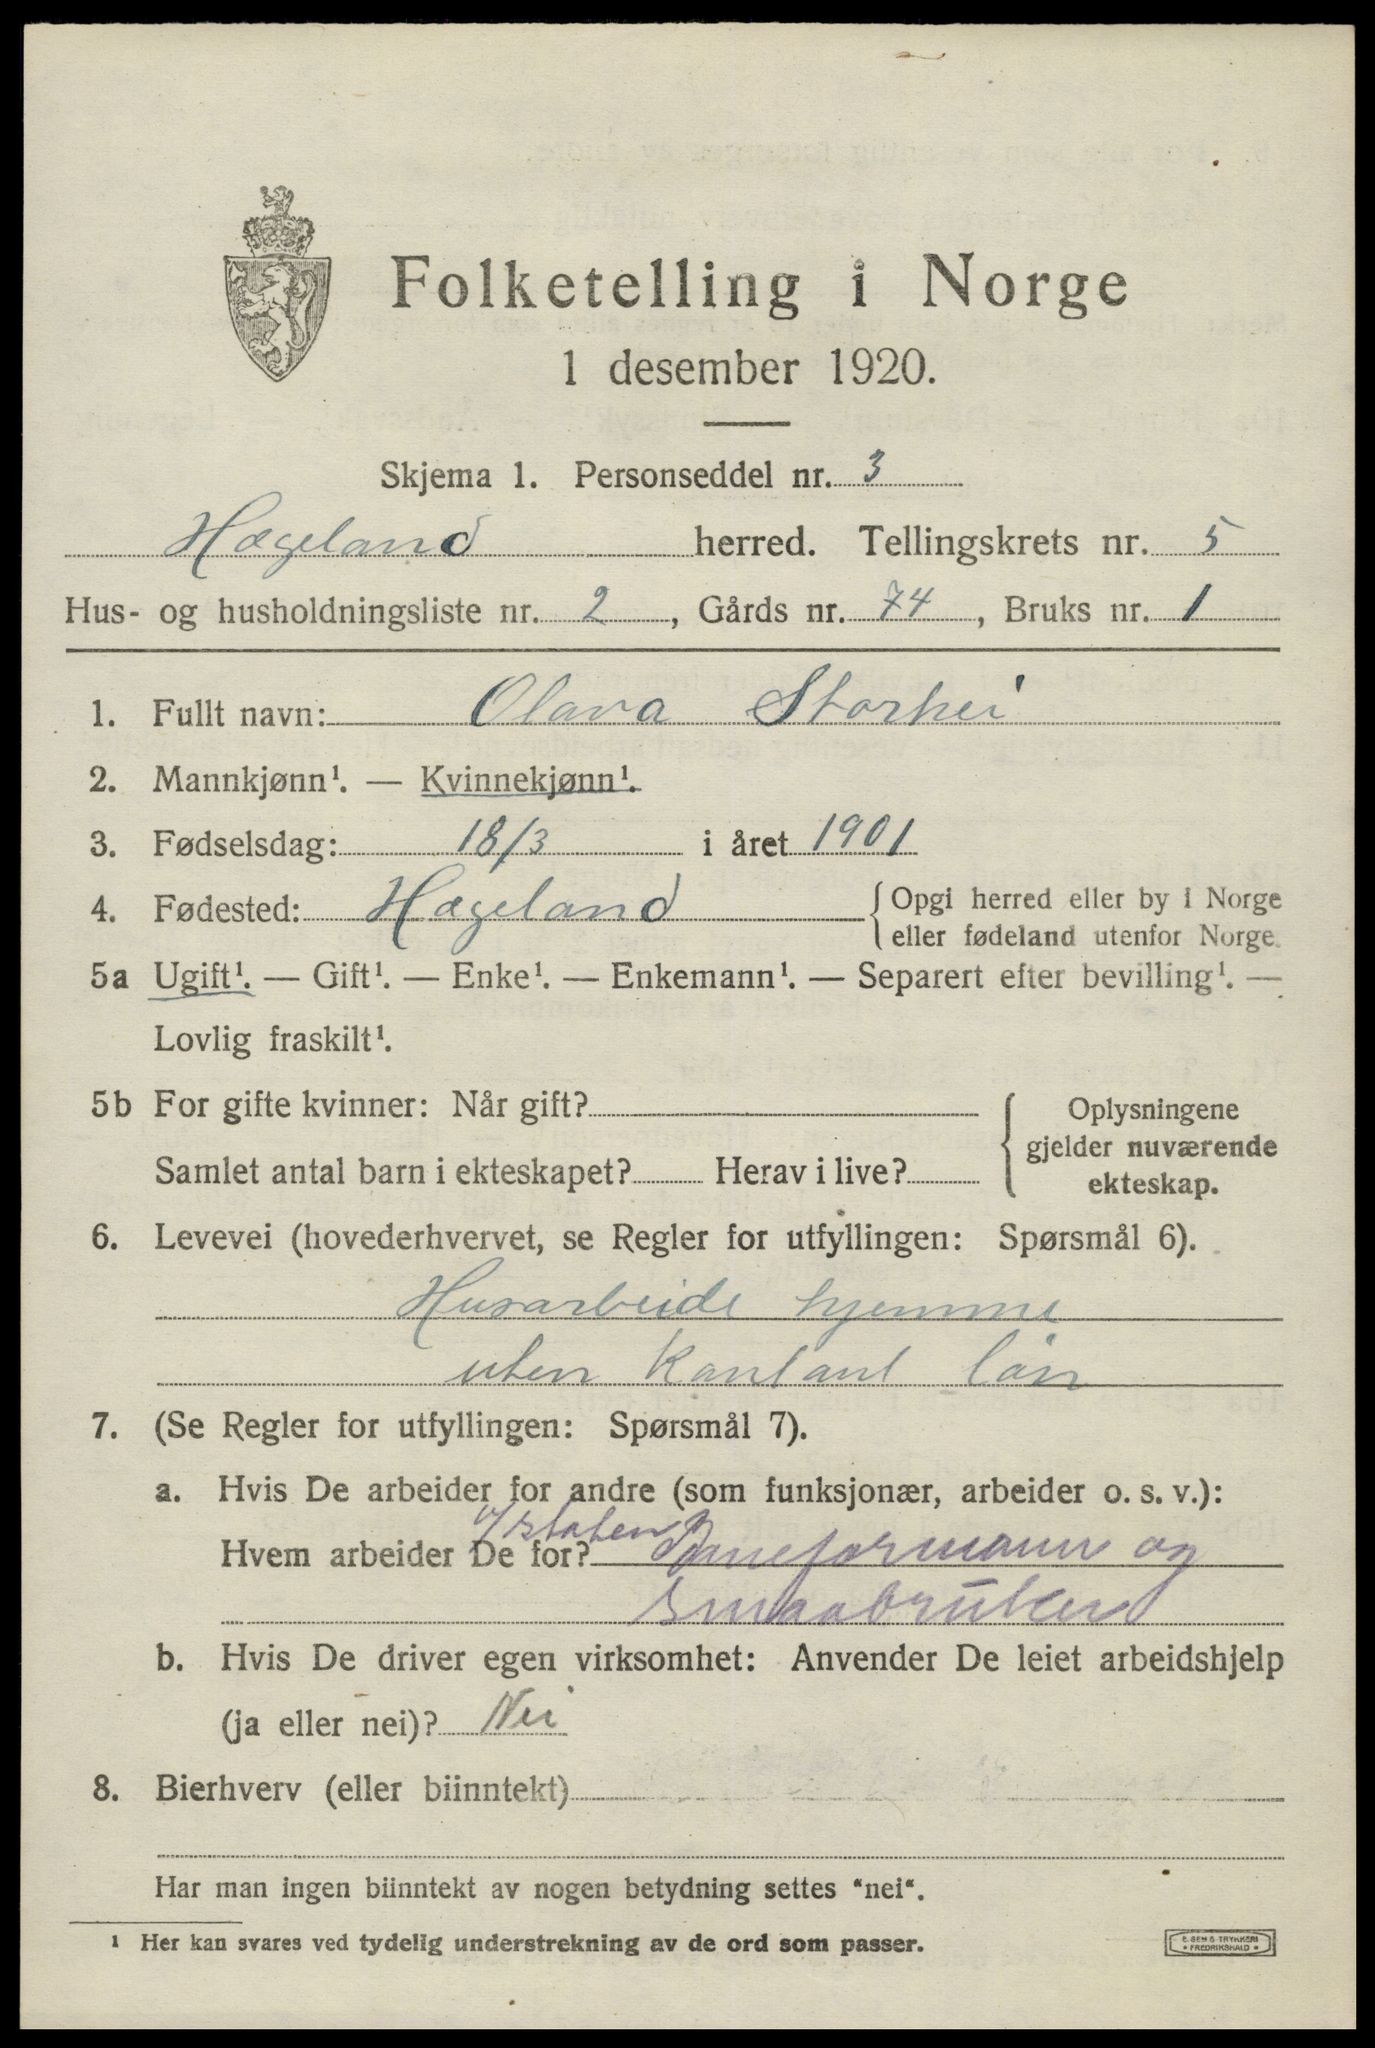 Folketelling i Norge
1 desember 1920.
Skjema 1. Personseddel nr. 3
Hægeland herred. Tellingskrets nr. 5
Hus- og husholdningsliste nr. 2, Gårds nr. 74, Bruks nr. 1
1. Fullt navn: Olava Storhei
2. Mannkjønn¹. — Kvinnekjønn¹.
3. Fødselsdag: 18/3 i året 1901
4. Fødested: Hægeland {Opgi herred eller by i Norge
eller fødeland utenfor Norge.
5a Ugift¹. — Gift¹. — Enke¹. — Enkemann¹. — Separert efter bevilling¹. —
Lovlig fraskilt¹.
5b For gifte kvinner: Når gift?
Samlet antal barn i ekteskapet? Herav i live?
Oplysningene
gjelder nuværende
ekteskap.
6. Levevei (hovederhvervet, se Regler for utfyllingen: Spørsmål 6).
Husarbeide hjemme
uten Kontant løn
7. (Se Regler for utfyllingen: Spørsmål 7).
a. Hvis De arbeider for andre (som funksjonær, arbeider o. s. v.):
v/staten
Hvem arbeider De for? Baneformann og
smaabruker
b. Hvis De driver egen virksomhet: Anvender De leiet arbeidshjelp
(ja eller nei)? Nei
8. Bierhverv (eller biinntekt)
Har man ingen biinntekt av nogen betydning settes "nei".
¹ Her kan svares ved tydelig understrekning av de ord som passer.
E. SEM S TRYKKERI
FREDRIKSHALD